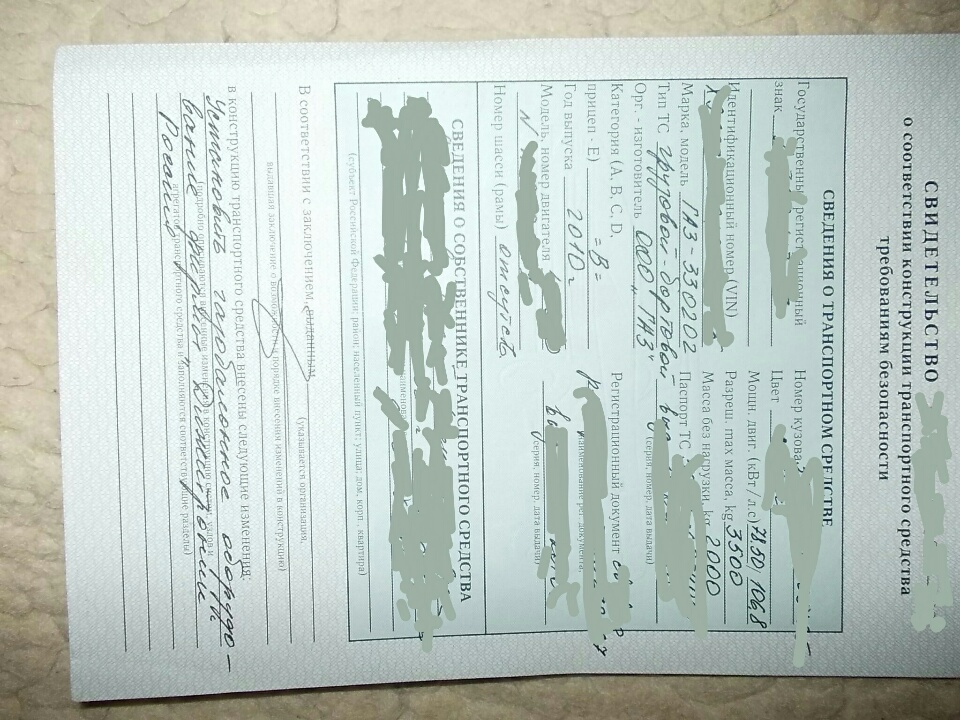 СВИДЕТЕЛЬСТВО
о соответствии конструкции транспортного средства
требованиям безопасности
СВЕДЕНИЯ О ТРАНСПОРТНОМ СРЕДСТВЕ
Государственный регистрационный
знак
Идентификационный номер (VIN)
Марка, модель ГАЗ-330202
Тип ТС грузовой-бортовой
Орг. - изготовитель ООО "ГАЗ"
Категория (A, B, C, D,
прицеп - E) =В=
Год выпуска 2010г
Модель, номер двигателя
N
Номер шасси (рамы) отсутств
Номер кузова
Цвет
Мощн. двиг. (кВт/л.с) 78.50/106,8
Разреш. max масса, kg 3500
Масса без нагрузки, kg 2000
Паспорт ТС
(серия, номер, дата выдачи)
Регистрационный документ
(наименование рег. документа,
серия, номер, дата выдачи)
СВЕДЕНИЯ О СОБСТВЕННИКЕ ТРАНСПОРТНОГО СРЕДСТВА
(субъект Российской Федерации; район; населенный пункт; улица; дом, корп., квартира)
В соответствии с заключением, выданным
(указывается организация,
выдавшая заключение о возможности и порядке внесения изменений в конструкцию)
в конструкцию транспортного средства внесены следующие изменения:
Установить газобаллонное оборудо-
(подробно описываются внесенные изменения в конструкцию систем, узлов и
вание
агрегатов транспортного средства и заполняются соответствующие разделы)
Россия